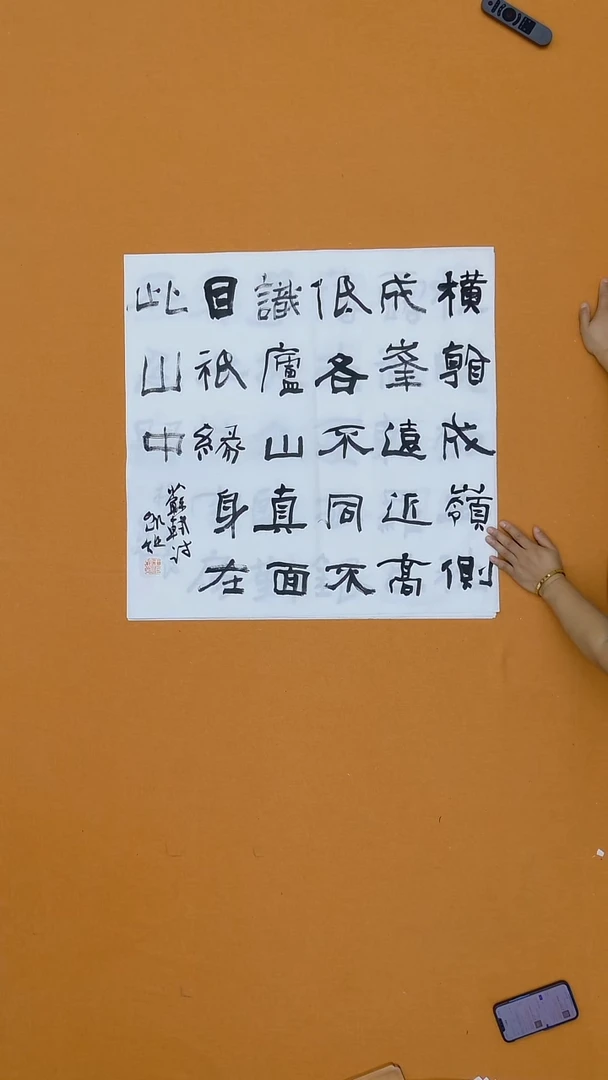 橫看成嶺側
成峯遠近高
低各不同不
識廬山真面
目祇緣身在
此山中
蘇軾詩